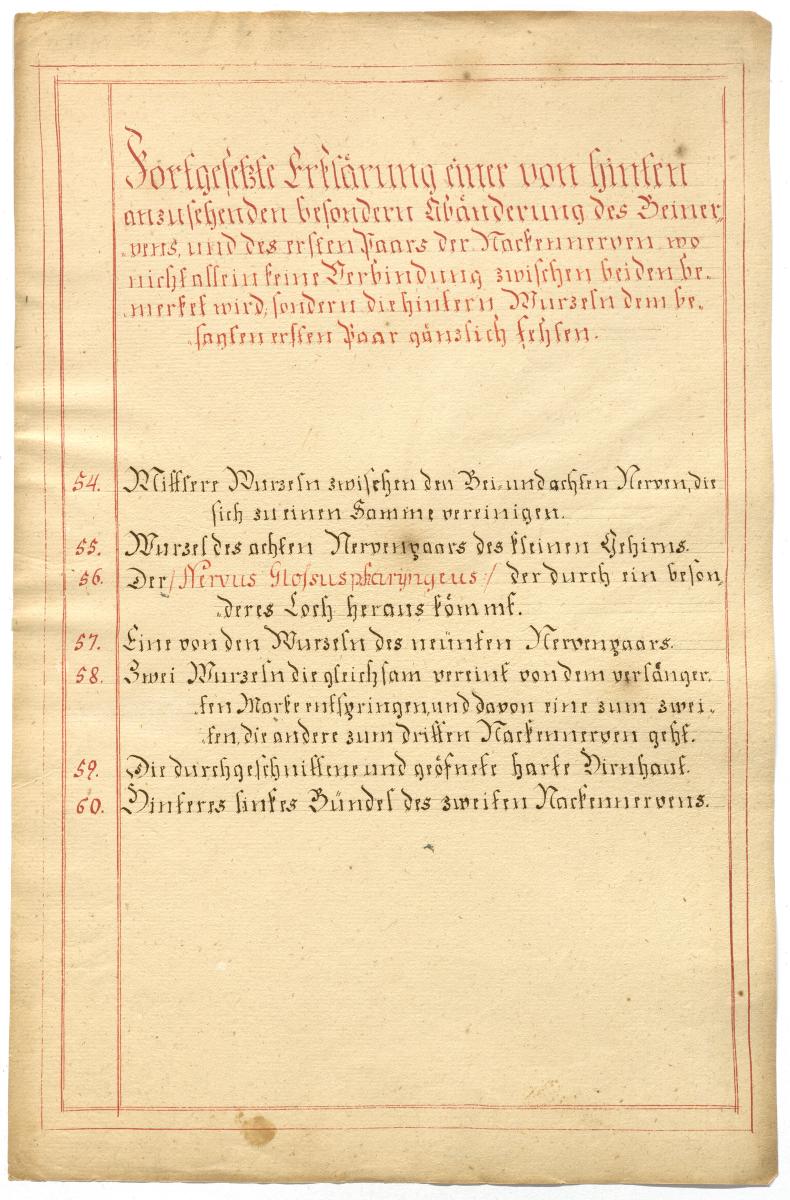 Fortgesetzte Erklärung einer von hinten
anzusehenden besondern Abänderung des Beiner„
„vens, und des ersten Paars der Nackennerven, wo
nicht allein keine Verbindung zwischen beiden be„
„merket wird, sondern die hintern Wurzeln dem be„
„sagten ersten Paar gänzlich fehlen.
54. Mittlere Wurzeln zwischen den Bei- und achten Nerven, die
sich zu einen Samme vereinigen.
55. Wurzel des achten Nervenpaars des kleinen Gehirns.
56. Der /: Nervus Glossuspharÿngeus :/ der durch ein beson„
„deres Loch heraus kömmt.
57. Eine von den Wurzeln des neünten Nervenpaars.
58. Zwei Wurzeln die gleichsam vereint von dem verlänger„
„ten Marke entspringen, und davon eine zum zwei„
„ten, die andere zum dritten Nackennerven geht.
59. Die durchgeschnittene und geöfnete harte Hirnhaut.
60. Hinteres linkes Bündel des zweiten Nackennervens.